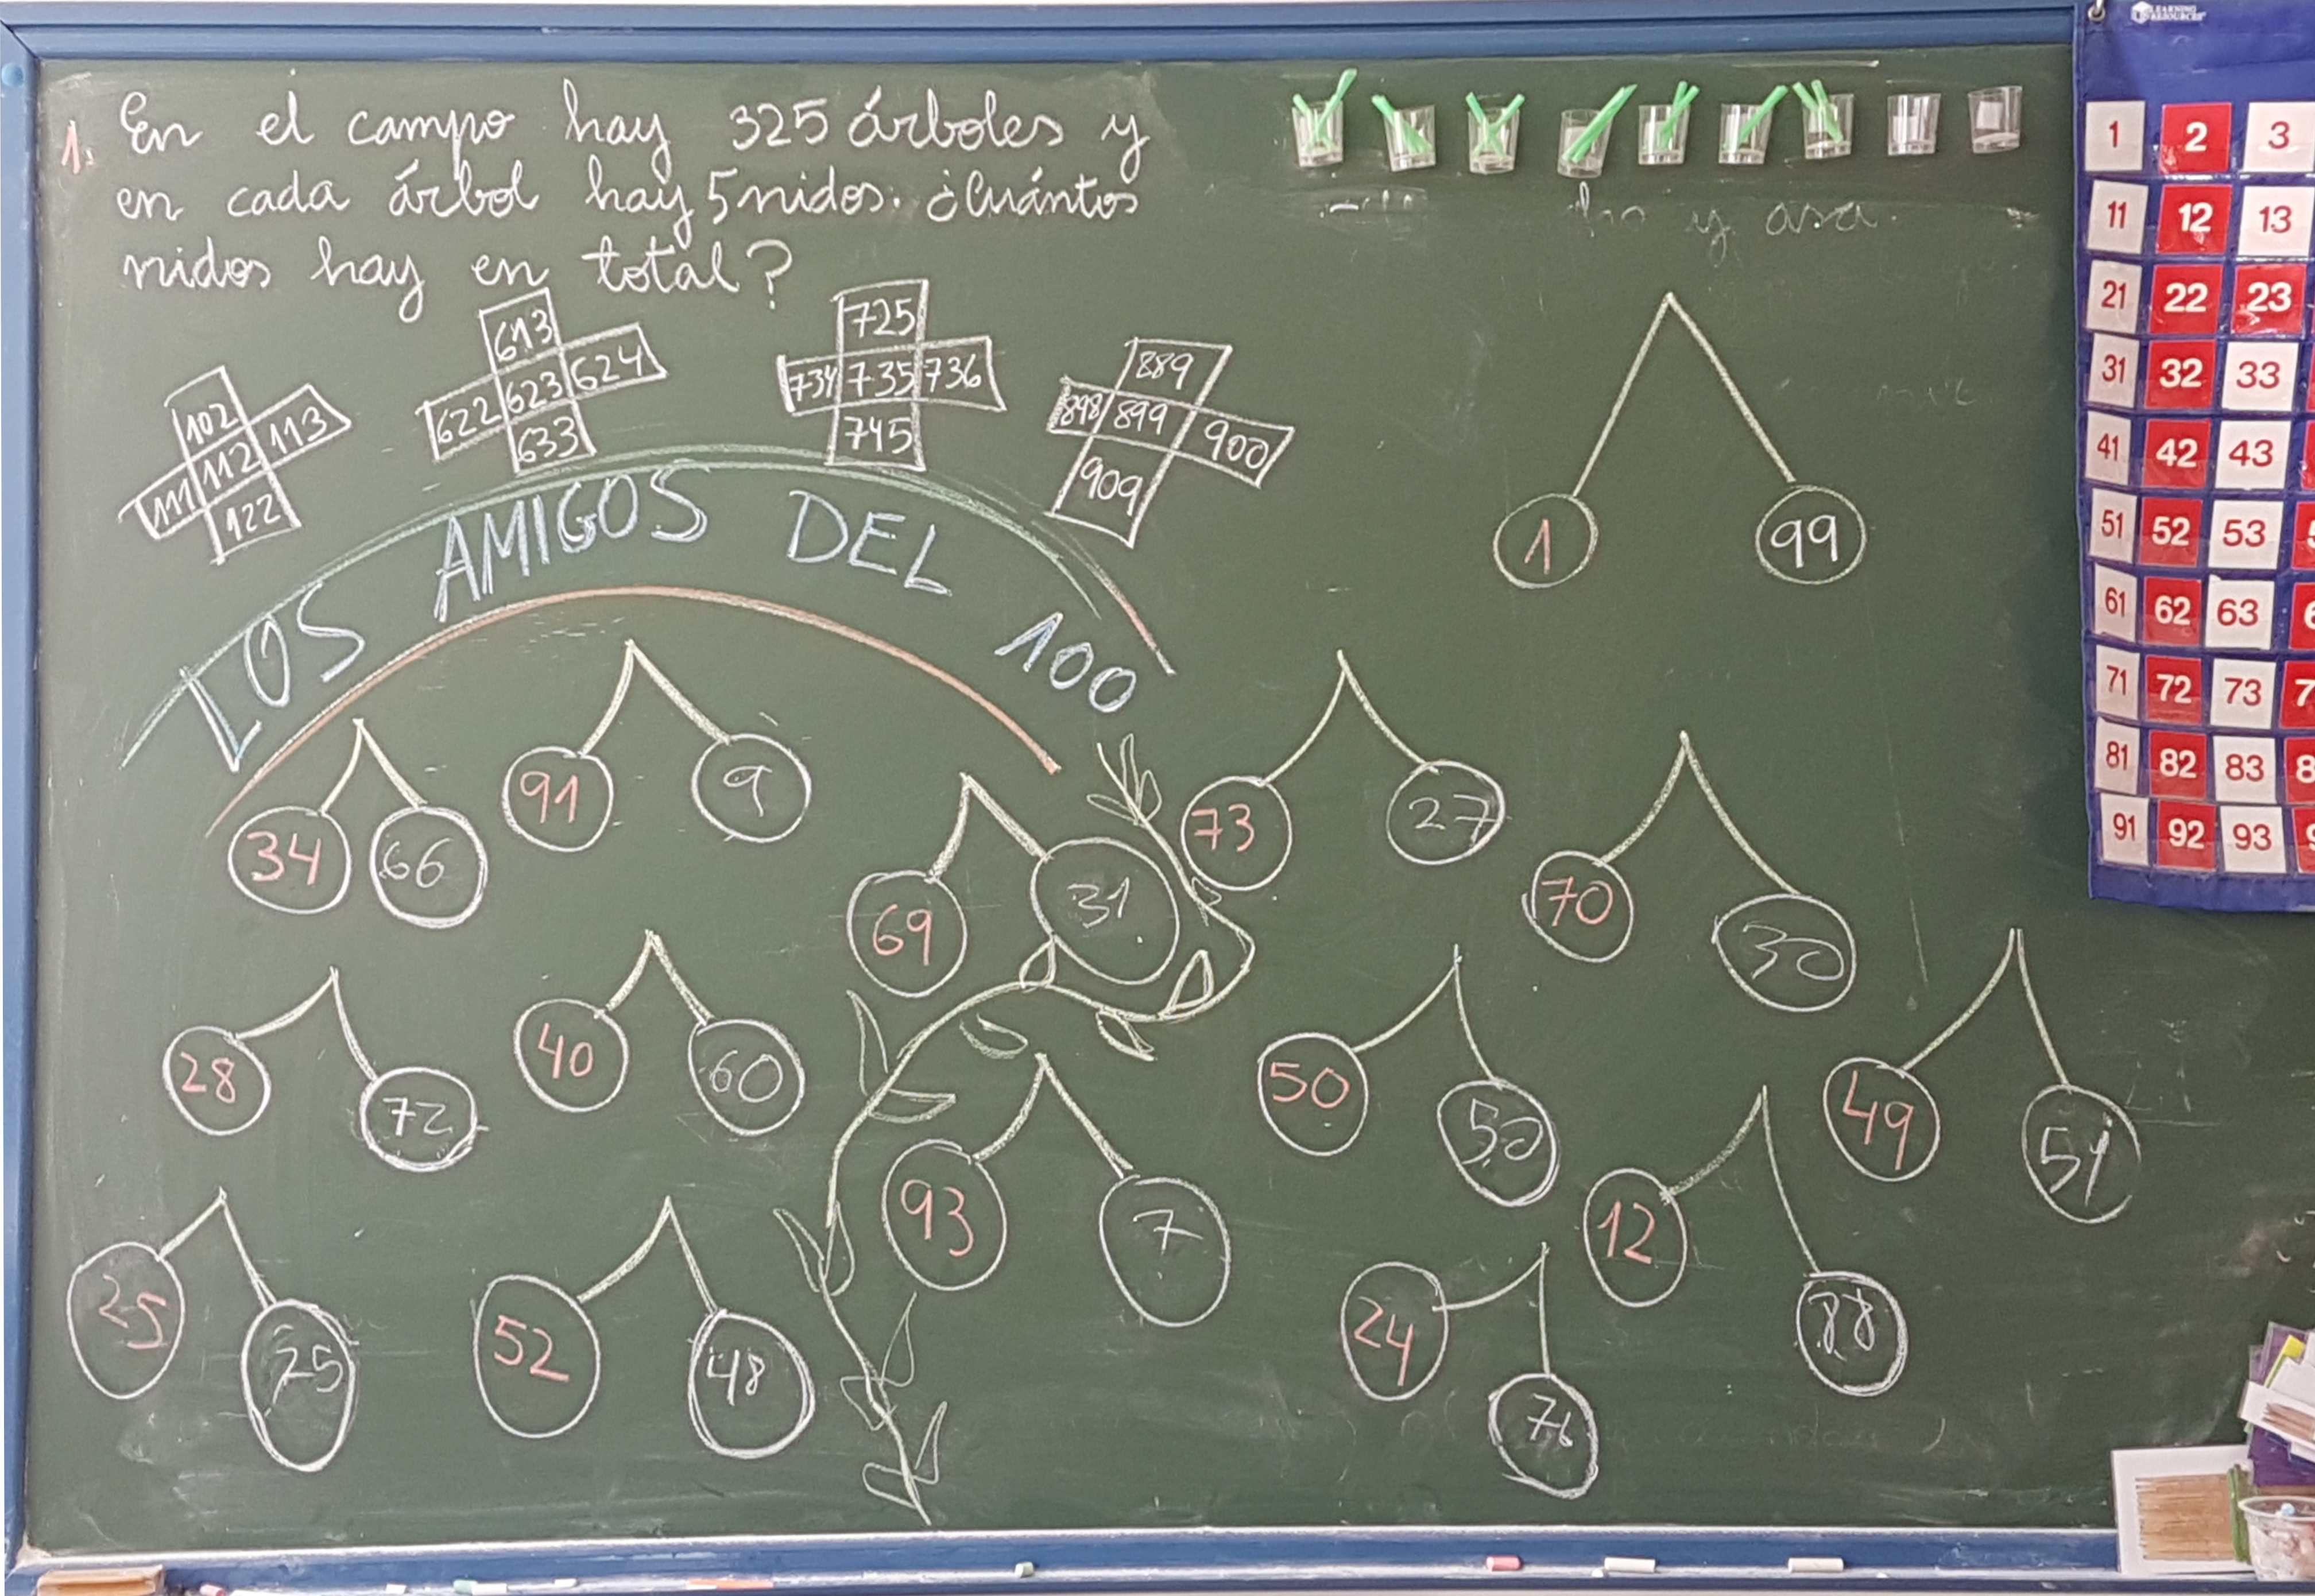 1. En el campo hay 325 árboles y
en cada árbol hay 5 nidos. ¿Cuántos
nidos hay en total?
102
111 112 113
122
613
622 623 624
633
725
734 735 736
745
889
898 899 900
909
LOS AMIGOS DEL 100
1 99
34 66
91 9
69 31
73 27
70 30
28 72
40 60
93 7
50 50
49 51
25 75
52 48
24 76
12 88
y asa.
LEARNING
RESOURCES
1 2 3
11 12 13
21 22 23
31 32 33
41 42 43
51 52 53
61 62 63
71 72 73
81 82 83
91 92 93